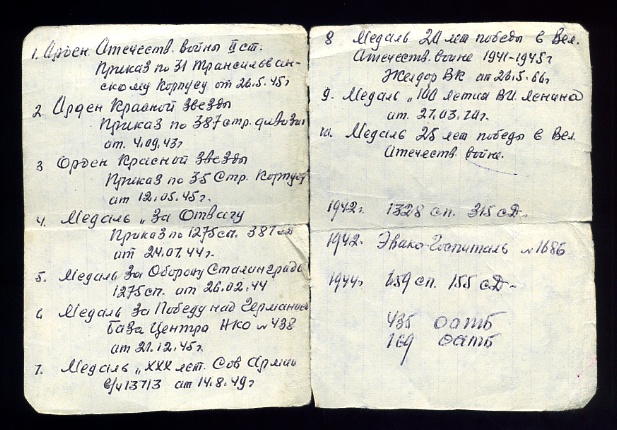 1. Орден Отечеств. войны II ст.
Приказ по 31 Трансильван-
скому корпусу от 26.5.45г
2 Орден Красной Звезды
Приказ по 387 стр. дивизии
от 4.09.43г
3 Орден Красной Звезды
Приказ по 35 Стр. Корпусу
от 12.05.45г.
4. Медаль „За Отвагу
Приказ по 1275 сп. 387 сд
от 24.07.44г
5. Медаль За Оборону Сталинграда
1275 сп. от 26.02.44
6 Медаль За Победу над Германией
База Центра НКО №438
от 21.12.45г.
7. Медаль „XXX лет. Сов Армии
в/ч 13713 от 14.8.49г
8 Медаль 20 лет победы в Вел.
Отечеств. войне 1941-1945г
РВК от 26.5.66г
9. Медаль „100 летия В.И. Ленина
от. 27.03.70г.
10. Медаль 25 лет победы в Вел.
Отечеств война.
1942г. 1328 сп. 315 сд.
1942. Эвако-Госпиталь №1686
1944г 659 сп. 155 сд.
435 оатб
169 оатб